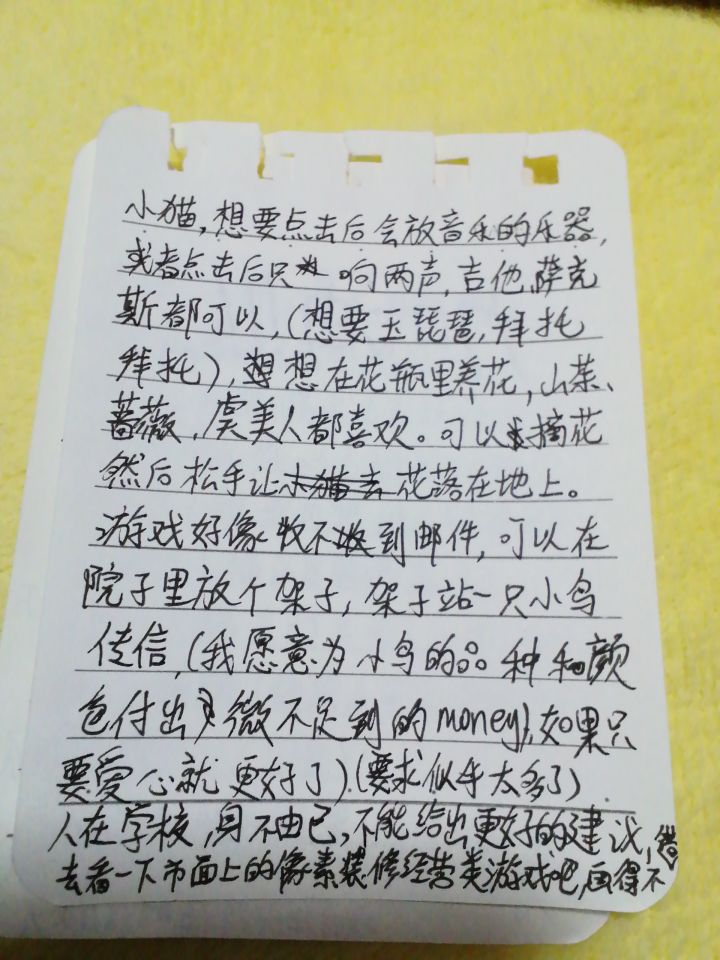 小猫,想要点击后会放音乐的乐器,
或者点击后只响两声,吉他,萨克
斯都可以,(想要玉琵琶,拜托
拜托),想在花瓶里养花,山茶、
蔷薇,虞美人都喜欢。可以摘花
然后松手让花落在地上。
游戏好像收不到邮件,可以在
院子里放个架子,架子站一只小鸟
传信,(我愿意为小鸟的品种和颜
色付出微不足到的money),如果只
要爱心就更好了)(要求似乎太多了)
人在学校,身不由已,不能给出更好的建议,
去看一下市面上的像素装修经营类游戏吧,画得不